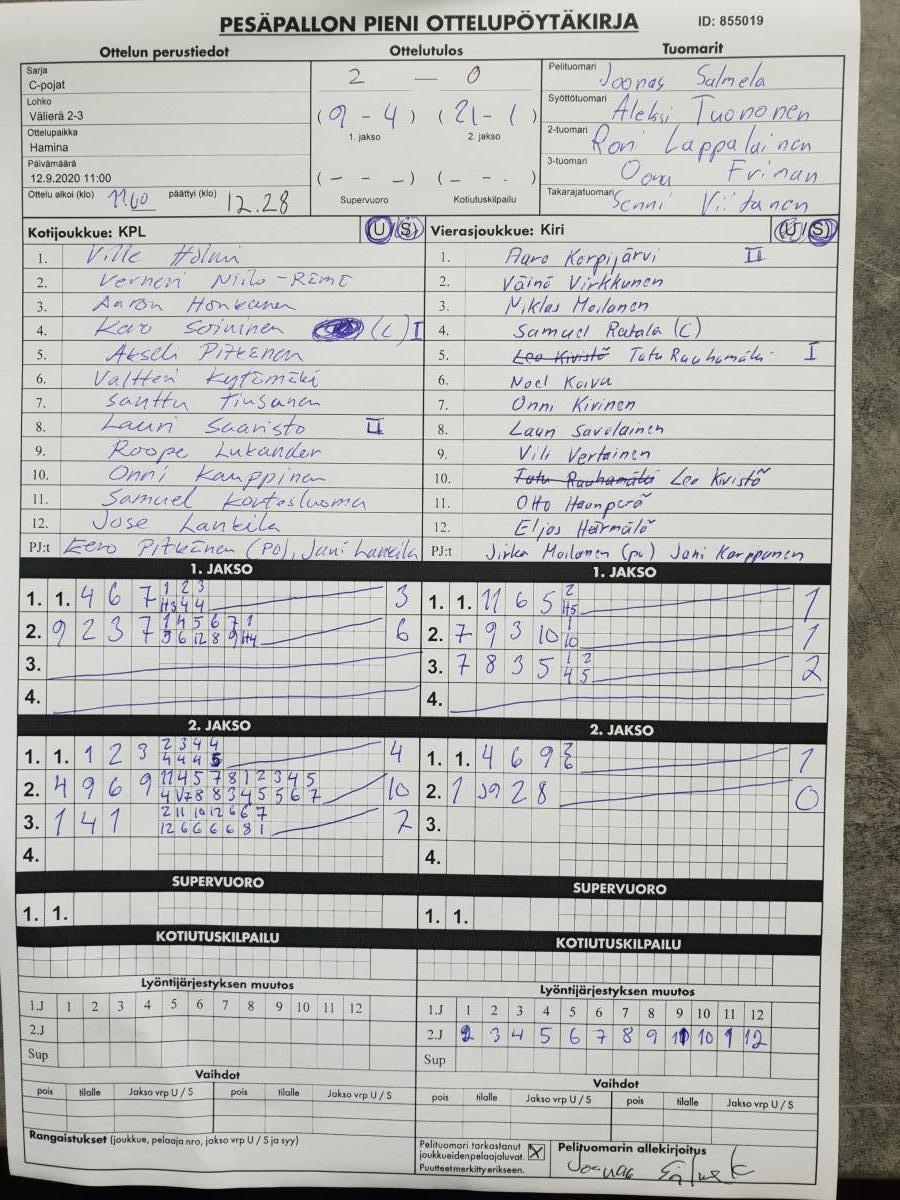 PESÄPALLON PIENI OTTELUPÖYTÄKIRJA ID: 855019
Ottelun perustiedot Ottelutulos Tuomarit
Sarja
C-pojat
Lohko
Välierä 2-3
Ottelupaikka
Hamina
Päivämäärä
12.9.2020 11:00
Ottelu alkoi (klo) 11.00 päättyi (klo) 12.28
2 — 0
(9 - 4) (21 - 1)
1. jakso 2. jakso
(- - -) (- - -)
Supervuoro Kotiutuskilpailu
Pelituomari Joonas Salmela
Syöttötuomari Aleksi Tuononen
2-tuomari Roni Lappalainen
3-tuomari Oona Friman
Takarajatuomari Senni Viitanen
Kotijoukkue: KPL (U/S)
1. Ville Holmi
2. Verneri Niilo-Rämö
3. Aaron Honkanen
4. Eero Soininen (C) I
5. Akseli Pitkänen
6. Valtteri Kytömäki
7. Santtu Tiusanen
8. Lauri Saaristo II
9. Roope Lukander
10. Onni Kauppinen
11. Samuel Koutosluoma
12. Jose Lankila
PJ:t Eero Pitkänen (PO), Jani Lankila
Vierasjoukkue: Kiri (U/S)
1. Aaro Korpijärvi II
2. Väinö Virkkunen
3. Niklas Moilanen
4. Samuel Ratala (C)
5. Leo Kivistö Tatu Rauhamäki I
6. Noel Koivu
7. Onni Kivinen
8. Lauri Savolainen
9. Vili Vertainen
10. Tatu Rauhamäki Leo Kivistö
11. Otto Haanperä
12. Eljas Härmälä
PJ:t Jirka Moilanen (pu) Jani Karppanen
1. JAKSO
1. 1. 4 6 7 1 2 3 3
H3 4 4
2. 9 2 3 7 1 4 5 6 7 1 6
5 6 12 8 9 H4
3.
4.
1. JAKSO
1. 1. 11 6 5 2 1
H5
2. 7 9 3 10 1 1
10
3. 7 8 3 5 1 2 2
4 5
4.
2. JAKSO
1. 1. 1 2 3 2 3 4 4 4
4 4 4 5
2. 4 9 6 9 11 4 5 7 8 1 2 3 4 5 10
4 V7 8 8 3 4 5 5 6 7
3. 1 4 1 2 11 10 12 6 6 7 7
12 6 6 6 6 8 1
4.
2. JAKSO
1. 1. 4 6 9 2 1
6
2. 1 J9 2 8 0
3.
4.
SUPERVUORO
1. 1.
SUPERVUORO
1. 1.
KOTIUTUSKILPAILU
KOTIUTUSKILPAILU
Lyöntijärjestyksen muutos
1.J 1 2 3 4 5 6 7 8 9 10 11 12
2.J
Sup
Lyöntijärjestyksen muutos
1.J 1 2 3 4 5 6 7 8 9 10 11 12
2.J 2 3 4 5 6 7 8 9 11 10 1 12
Sup
Vaihdot
pois tilalle Jakso vrp U / S pois tilalle Jakso vrp U / S
Vaihdot
pois tilalle Jakso vrp U / S pois tilalle Jakso vrp U / S
Rangaistukset (joukkue, pelaaja nro, jakso vrp U / S ja syy)
Pelituomari tarkastanut
joukkueiden pelaajaluvat. X
Puutteet merkitty erikseen.
Pelituomarin allekirjoitus
Joonas